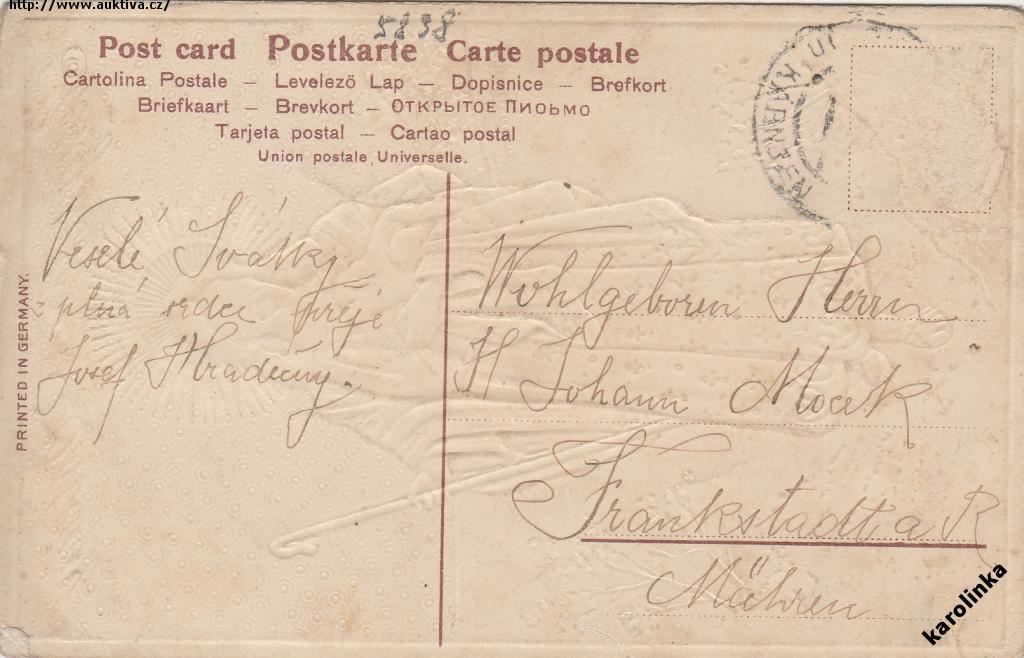 http://www.auktiva.cz/
5898
Post card Postkarte Carte postale
Cartolina Postale – Levelező Lap – Dopisnice – Brefkort
Briefkaart – Brevkort – ОТКРЫТОЕ ПИСЬМО
Tarjeta postal – Cartao postal
Union postale Universelle.
PRINTED IN GERMANY.
Veselé Svátky
z plná srdce přeje
Josef Hradečný.
Wohlgeboren Herrn
H. Johann Mocek
Frankstadt a R
Mähren
karolinka